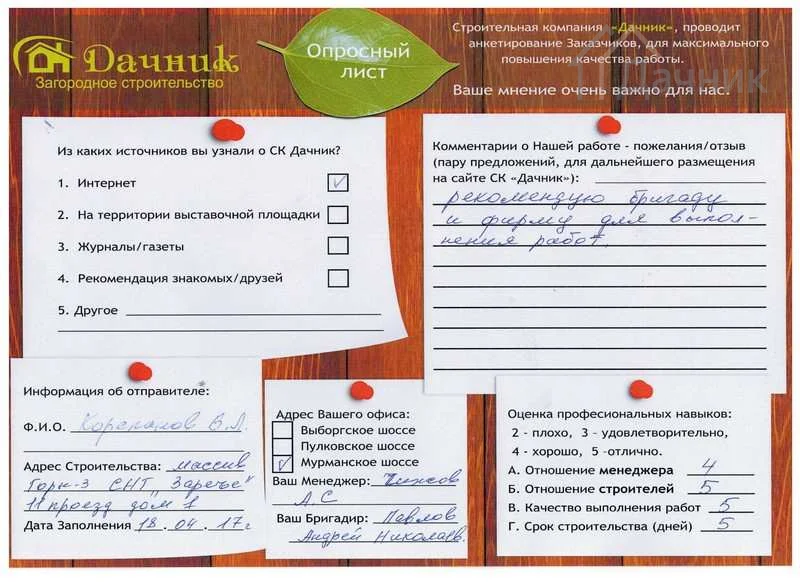 Дачник
Загородное строительство
Опросный
лист
Строительная компания «Дачник», проводит
анкетирование Заказчиков, для максимального
повышения качества работы.
Ваше мнение очень важно для нас.
Дачник
Из каких источников вы узнали о СК Дачник?
1. Интернет
2. На территории выставочной площадки
3. Журналы/газеты
4. Рекомендация знакомых/друзей
5. Другое
Комментарии о Нашей работе - пожелания/отзыв
(пару предложений, для дальнейшего размещения
на сайте СК «Дачник»):
рекомендую бригаду
и фирму для выпол-
нения работ.
Информация об отправителе:
Ф.И.О. Корепанов В.Л.
Адрес Строительства: массив
Горы-3 СНТ "Заречье"
11 проезд дом 1
Дата Заполнения 18.04.17г
Адрес Вашего офиса:
Выборгское шоссе
Пулковское шоссе
Мурманское шоссе
Ваш Менеджер:
А.С
Ваш Бригадир: Павлов
Андрей Николаев.
Оценка професиональных навыков:
2 - плохо, 3 - удовлетворительно,
4 - хорошо, 5 -отлично.
А. Отношение менеджера 4
Б. Отношение строителей 5
В. Качество выполнения работ 5
Г. Срок строительства (дней) 5